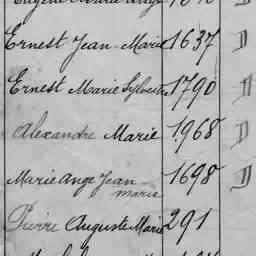 Eugène Marie Ange
Ernest Jean Marie 1637 D
Ernest Marie Sylvestre 1790 D
Alexandre Marie 1968 D
Marie Ange Jean 1698 D
Marie
Pierre Auguste Marie 291